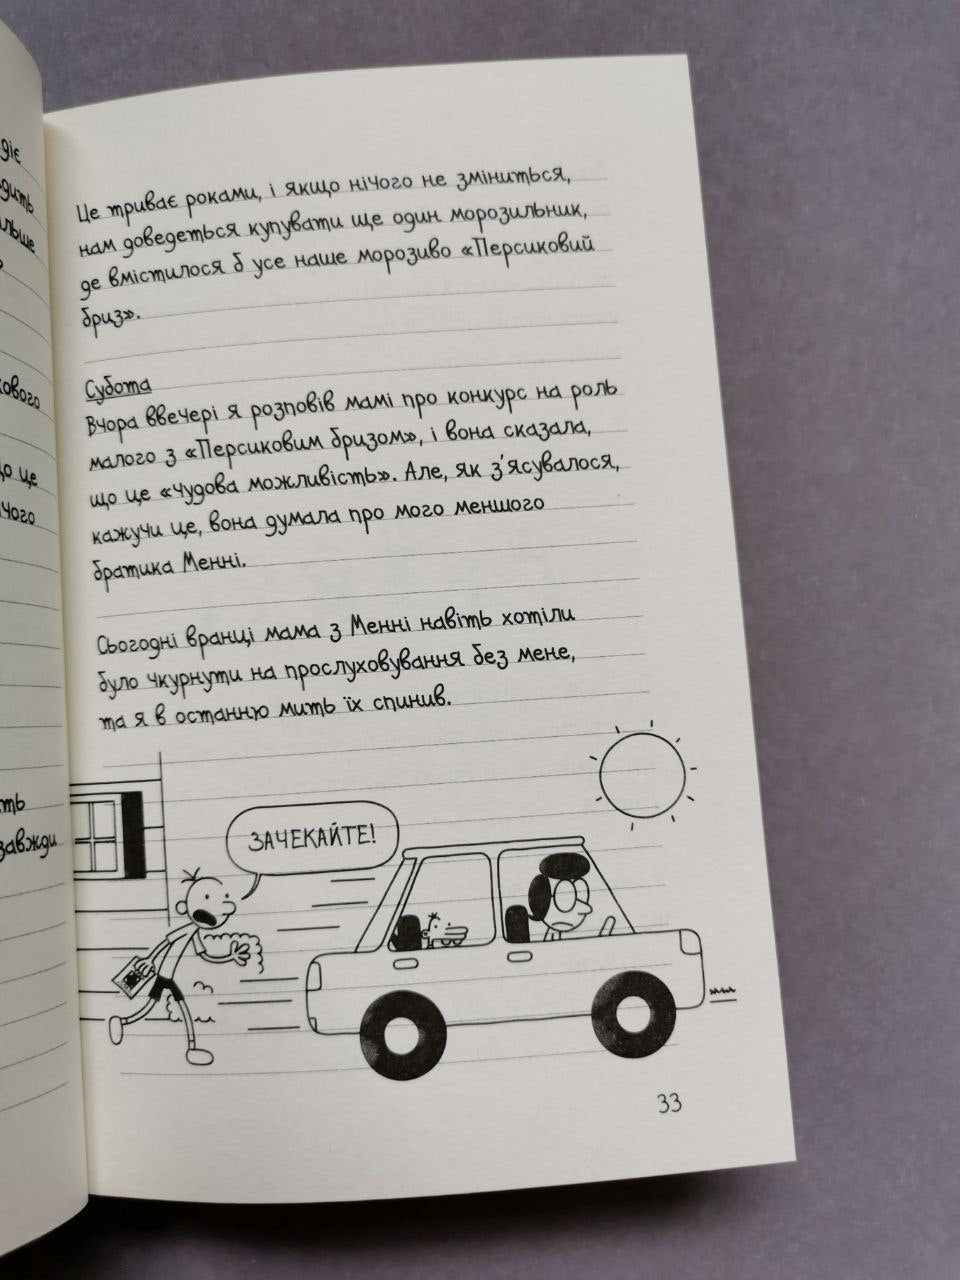 діє
дить
льше
кового
що це
нічого
ть
завжди
Це триває роками, і якщо нічого не зміниться,
нам доведеться купувати ще один морозильник,
де вмістилося б усе наше морозиво «Персиковий
бриз».
Субота
Вчора ввечері я розповів мамі про конкурс на роль
малого з «Персиковим бризом», і вона сказала,
що це «чудова можливість». Але, як з'ясувалося,
кажучи це, вона думала про мого меншого
братика Менні.
Сьогодні вранці мама з Менні навіть хотіли
було чкурнути на прослуховування без мене,
та я в останню мить їх спинив.
ЗАЧЕКАЙТЕ!
33